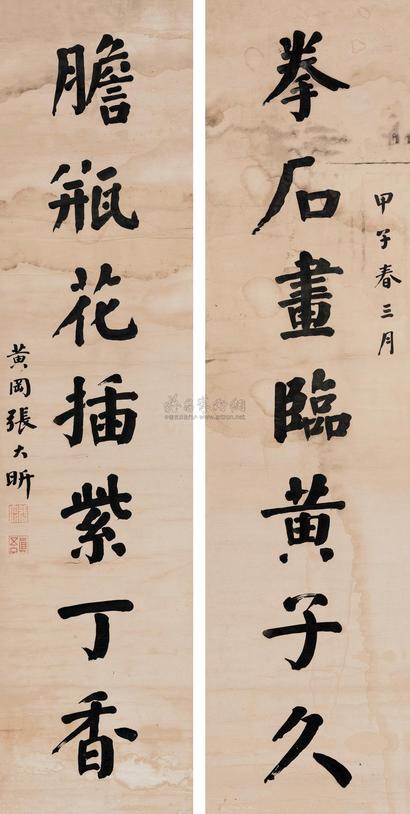 甲子春三月
拳石畫臨黄子久
膽瓶花插紫丁香
黄岡張大昕